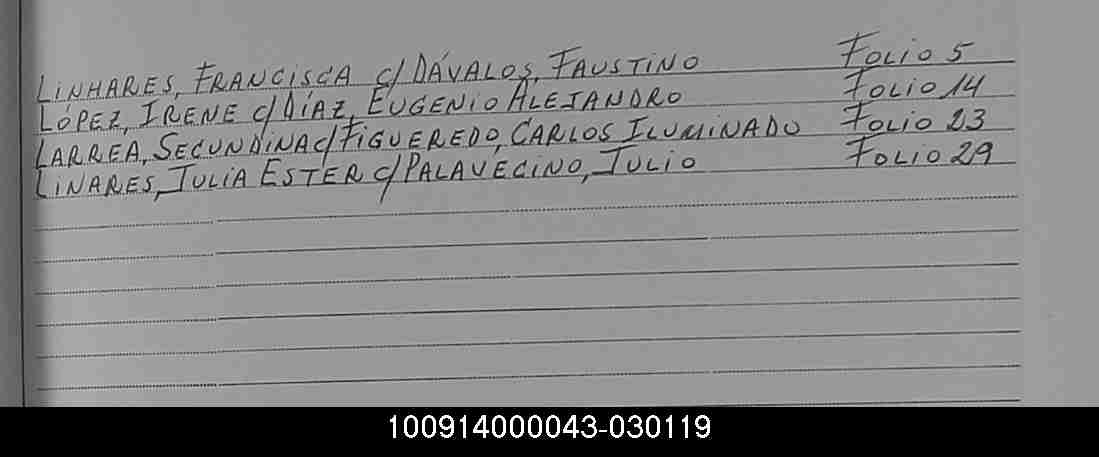 LINHARES, FRANCISCA c/ DÁVALOS, FAUSTINO FOLIO 5
LÓPEZ, IRENE c/ DÍAZ, EUGENIO ALEJANDRO FOLIO 14
LARREA, SECUNDINA c/ FIGUEREDO, CARLOS ILUMINADO FOLIO 23
LINARES, JULIA ESTER c/ PALAVECINO, JULIO FOLIO 29
100914000043-030119